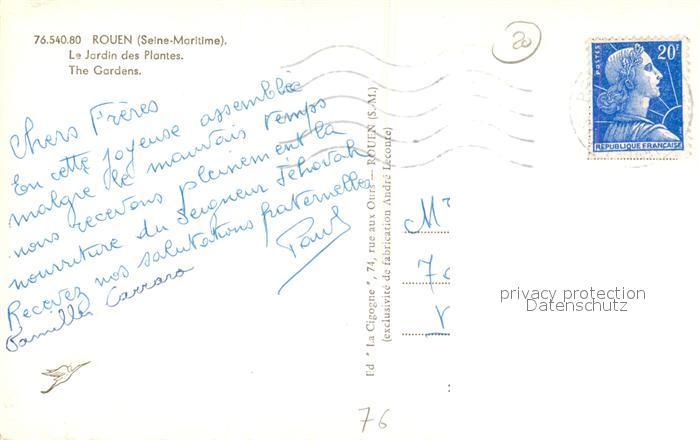 76.540.80 ROUEN (Seine-Maritime).
Le Jardin des Plantes.
The Gardens.
20
POSTES
20F
REPUBLIQUE FRANÇAISE
Chers Frères
En cette joyeuse assemblée
malgré le mauvais temps
nous recevons pleinement la
nourriture du Seigneur Jéhovah
Recevez nos salutations fraternelles
Paul
Famille Carrara
Ed " La Cigogne ", 74, rue aux Ours — ROUEN (S.-M.)
(exclusivité de fabrication André Leconte)
privacy protection
Datenschutz
76